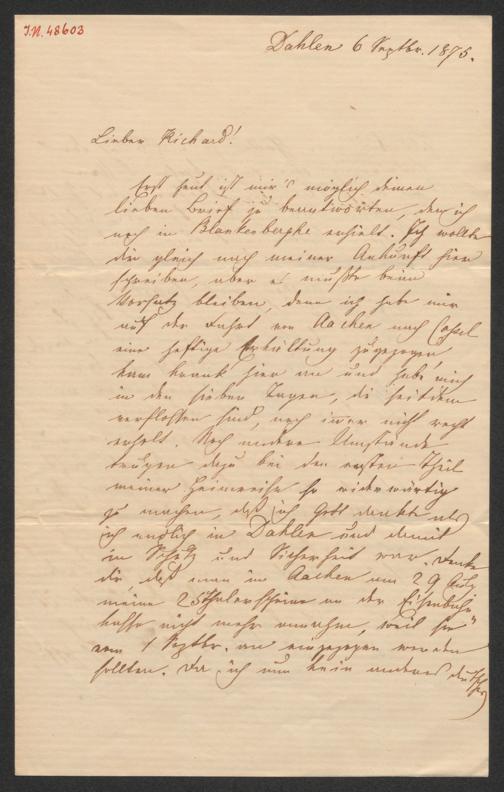 I.N. 48603
Dahlen 6 Septbr. 1875.
Lieber Richard!
Erst heut ist mir's möglich deinen
lieben Brief zu beantworten, den ich
noch in Blankenberghe erhielt. Ich wollte
dir gleich nach meiner Ankunft hier
schreiben, aber es mußte beim
Vorsatz bleiben, denn ich habe mir
auf der Fahrt von Aachen nach Cassel
eine heftige Erkältung zugezogen,
kam krank hier an und habe mich
in den sieben Tagen, die seitdem
verflossen sind, noch immer nicht recht
erholt. Noch andere Umstände
trugen dazu bei den ersten Theil
meiner Heimreise so widerwärtig
zu machen, daß ich Gott dankte als
ich endlich in Dahlen und damit
in Schutz und Sicherheit war. Denke
dir, daß man in Aachen am 29 Aug.
meine 25 Thalerscheine an der Eisenbahn
kasse nicht mehr annahm, weil sie
vom 1 Septbr. an eingezogen werden
sollten. Da ich nun kein anderes deutsches